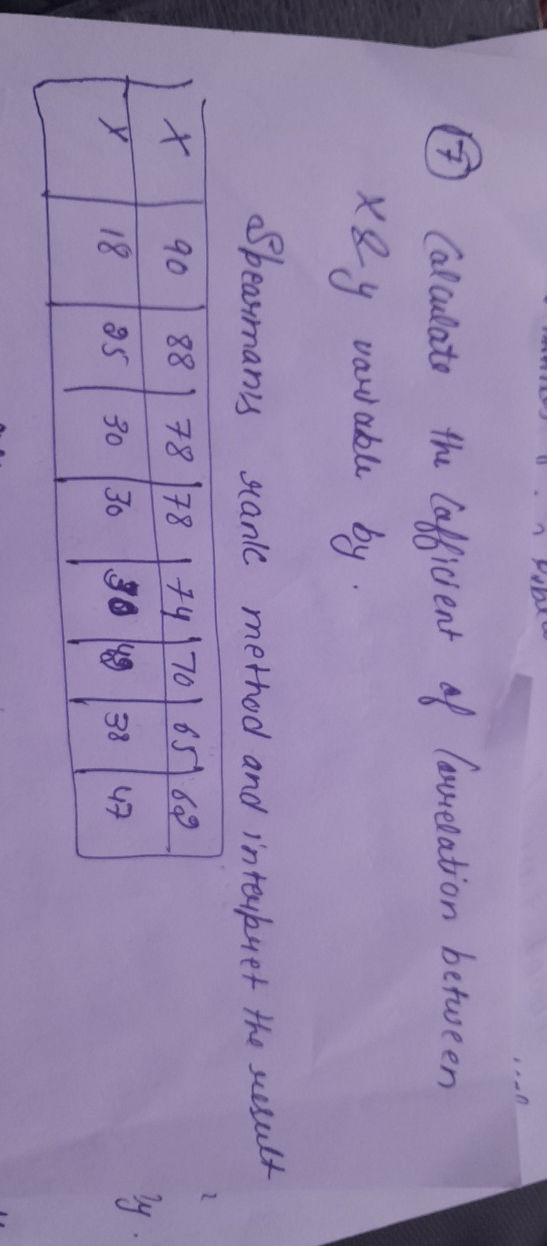 7 Calculate the Cafficient of Correlation between
X & y variable by.
Spearmans rank method and interpret the result
X 90 88 78 78 74 70 65 62
Y 18 25 30 30 30 42 38 47